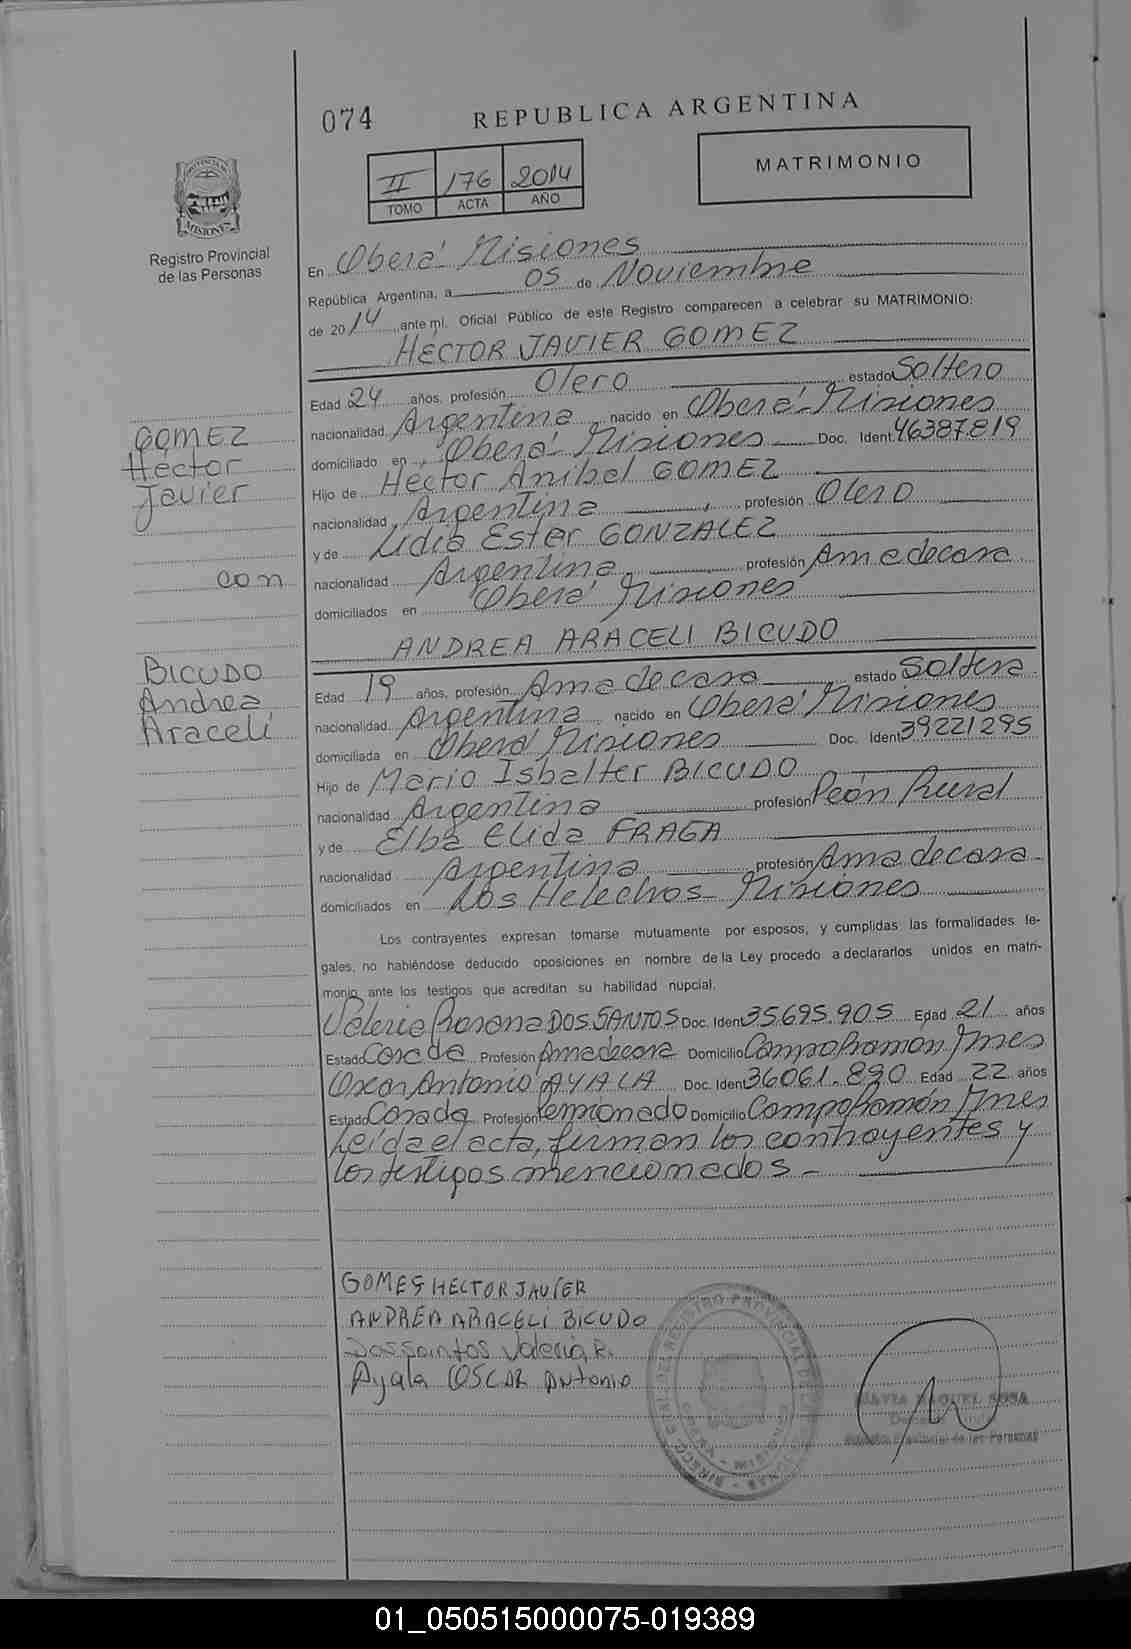 074
REPUBLICA ARGENTINA
II 176 2014
TOMO ACTA AÑO
MATRIMONIO
PROVINCIA DE
MISIONES
Registro Provincial
de las Personas
En Oberá- Misiones
República Argentina, a 05 de Noviembre
de 2014 ante mí. Oficial Público de este Registro comparecen a celebrar su MATRIMONIO:
HÉCTOR JAVIER GOMEZ
Edad 24 años, profesión Olero estado Soltero
nacionalidad Argentina nacido en Oberá- Misiones
domiciliado en Oberá- Misiones Doc. Ident. 46387819
Hijo de Héctor Anibal GOMEZ
nacionalidad Argentina profesión Olero
y de Lidia Ester GONZALEZ
nacionalidad Argentina profesión Ama de casa
domiciliados en Oberá Misiones
GOMEZ
Héctor
Javier
con
BICUDO
Andrea
Araceli
ANDREA ARACELI BICUDO
Edad 19 años, profesión Ama de casa estado Soltera
nacionalidad Argentina nacido en Oberá Misiones
domiciliada en Oberá Misiones Doc. Ident 39221295
Hijo de Mario Isbelter BICUDO
nacionalidad Argentina profesión Peón Rural
y de Elba Elida FRAGA
nacionalidad Argentina profesión Ama de casa
domiciliados en Los Helechos- Misiones
Los contrayentes expresan tomarse mutuamente por esposos, y cumplidas las formalidades le-
gales, no habiéndose deducido oposiciones en nombre de la Ley procedo a declararlos unidos en matri-
monio ante los testigos que acreditan su habilidad nupcial.
Valeria Rosana DOS SANTOS Doc. Iden 35695.905 Edad 21 años
Estado Casada Profesión Ama de casa Domicilio Campo Ramón Mnes
Oscar Antonio AYALA Doc. Iden 36061.890 Edad 22 años
Estado Casado Profesión Pensionado Domicilio Campo Ramón Mnes
Leída el acta, firman los contrayentes y
los testigos mencionados -
GOMES HECTOR JAVIER
ANDREA ARACELI BICUDO
Dos Santos Valeria R.
Ayala OSCAR Antonio
RAQUEL SOSA
Provincial de las Personas
01_050515000075-019389